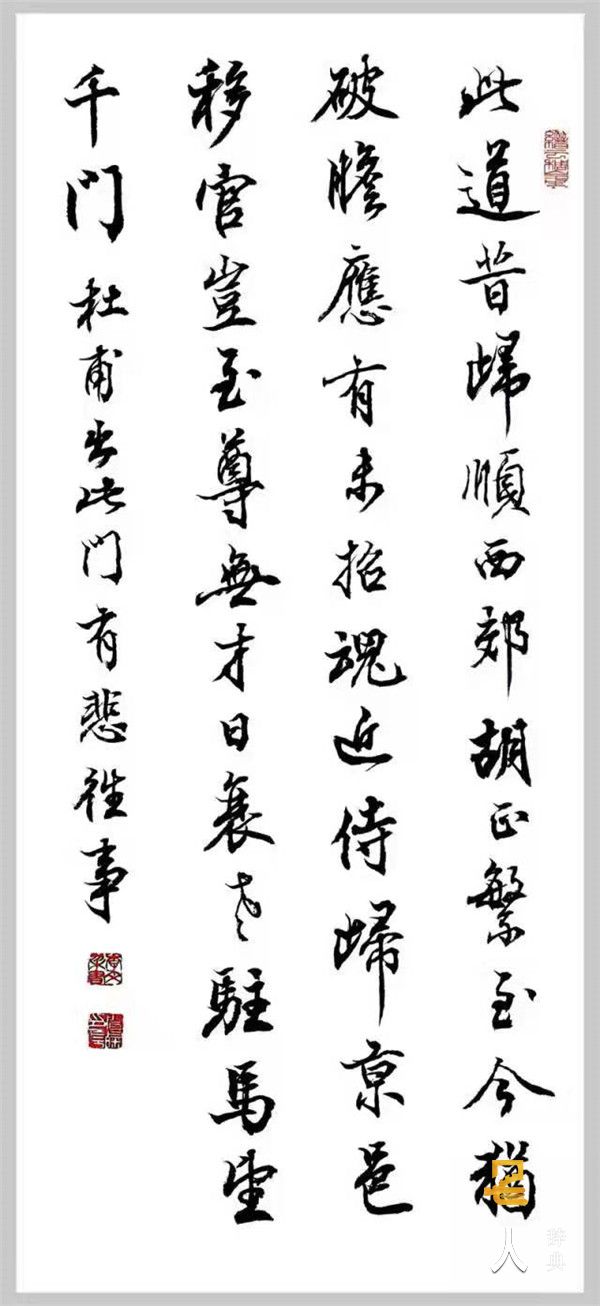 此道昔歸順西郊胡正繁至今猶
破膽應有未招魂近侍歸京邑
移官豈至尊無才日衰老駐馬望
千門 杜甫出此門有悲往事
名人
辞典